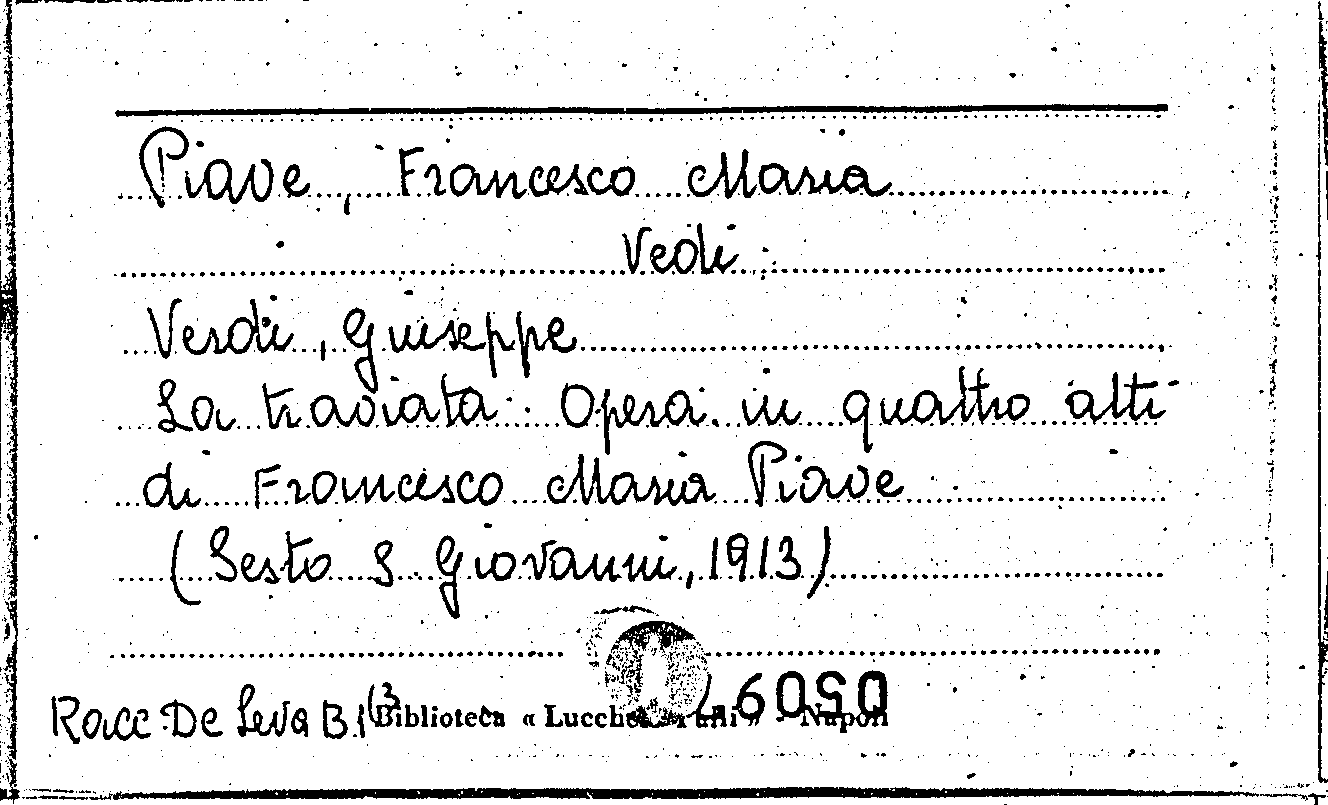 Piave, Francesco Maria
Vedi:
Verdi, Giuseppe
La traviata: Opera in quattro atti
di Francesco Maria Piave
(Sesto S. Giovanni, 1913)
Racc. De Leva B.1(3
Biblioteca « Lucchesi Palli » - Napoli